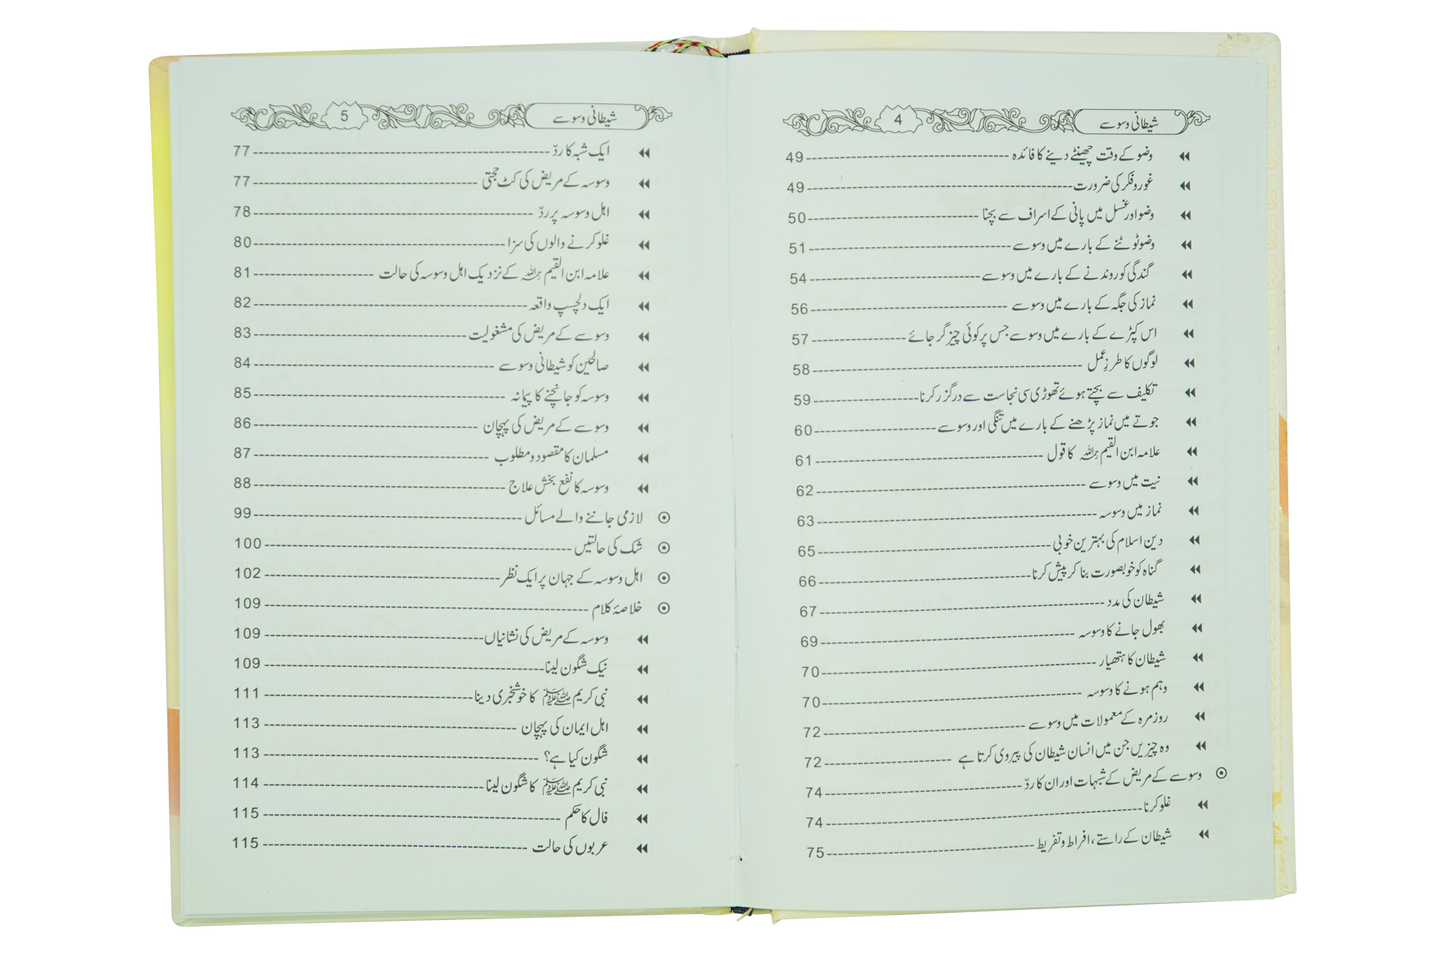 شیطانی وسوسے 4
وضو کے وقت چھینٹے دینے کا فائدہ 49
غور و فکر کی ضرورت 49
وضو اور غسل میں پانی کے اسراف سے بچنا 50
وضو ٹوٹنے کے بارے میں وسوسے 51
گندگی کو روندنے کے بارے میں وسوسے 54
نماز کی جگہ کے بارے میں وسوسے 56
اس کپڑے کے بارے میں وسوسے جس پر کوئی چیز گر جائے 57
لوگوں کا طرزِ عمل 58
تکلیف سے بچتے ہوئے تھوڑی سی نجاست سے درگزر کرنا 59
جوتے میں نماز پڑھنے کے بارے میں تنگی اور وسوسے 60
علامہ ابن القیم رحمہ اللہ کا قول 61
نیت میں وسوسے 62
نماز میں وسوسہ 63
دین اسلام کی بہترین خوبی 65
گناہ کو خوبصورت بنا کر پیش کرنا 66
شیطان کی مدد 67
بھول جانے کا وسوسہ 69
شیطان کا ہتھیار 70
وہم ہونے کا وسوسہ 70
روزمرہ کے معمولات میں وسوسے 72
وہ چیزیں جن میں انسان شیطان کی پیروی کرتا ہے 72
وسوسے کے مریض کے شبہات اور ان کا ردّ 74
غلو کرنا 74
شیطان کے راستے، افراط و تفریط 75
شیطانی وسوسے 5
ایک شبہ کا ردّ 77
وسوسہ کے مریض کی کٹ حجتی 77
اہل وسوسہ پر ردّ 78
غلو کرنے والوں کی سزا 80
علامہ ابن القیم رحمہ اللہ کے نزدیک اہل وسوسہ کی حالت 81
ایک دلچسپ واقعہ 82
وسوسے کے مریض کی مشغولیت 83
صالحین کو شیطانی وسوسے 84
وسوسہ کو جانچنے کا پیمانہ 85
وسوسے کے مریض کی پہچان 86
مسلمان کا مقصود و مطلوب 87
وسوسہ کا نفع بخش علاج 88
لازمی جاننے والے مسائل 99
شک کی حالتیں 100
اہل وسوسہ کے جہان پر ایک نظر 102
خلاصۂ کلام 109
وسوسہ کے مریض کی نشانیاں 109
نیک شگون لینا 109
نبی کریم ﷺ کا خوشخبری دینا 111
اہل ایمان کی پہچان 113
شگون کیا ہے؟ 113
نبی کریم ﷺ کا شگون لینا 114
فال کا حکم 115
عربوں کی حالت 115